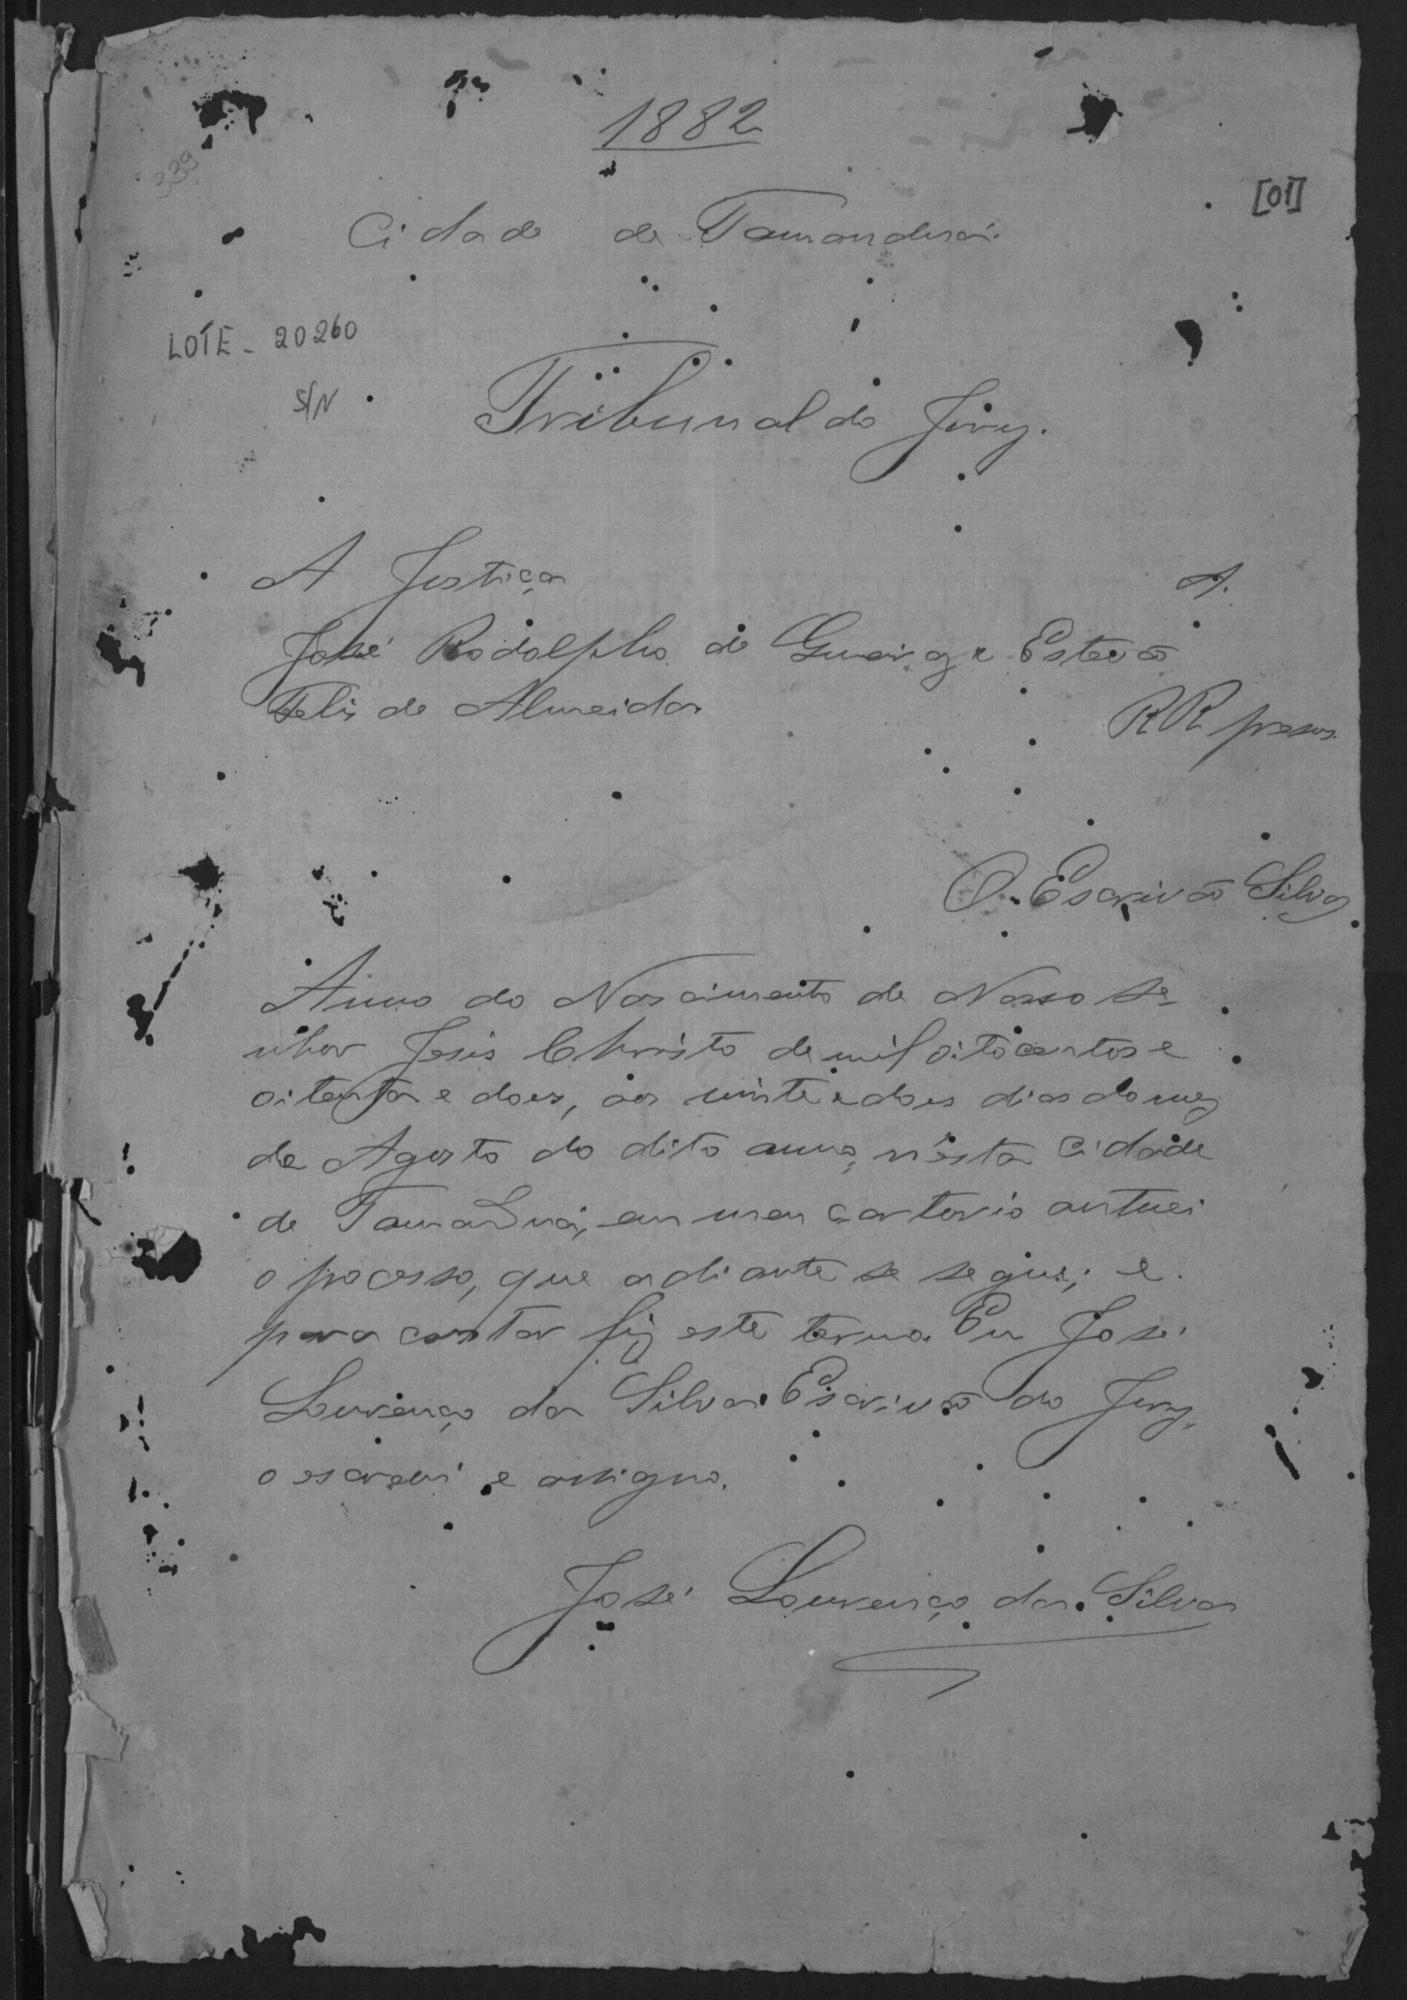 1882
339
[01]
Cidade de Tamanduá.
LOTE - 20260
S/N
Tribunal do Jury.
A Justiça A.
José Rodolpho de e Estevão
Felis de Almeida
RR presos.
O Escrivão Silva
Anno do Nascimento de Nosso Se-
nhor Jesis Christo de mil oitocentos e
oitenta e dois, aos vinte e dois dias do mez
de Agosto do dito anno, n'esta Cidade
de Tamanduá, em meu cartorio autuei
o processo, que adiante se segue; e
para constar fiz este termo. Eu José
Lourenço da Silva Escrivão do Jury,
o escrevi e assigno.
José Lourenço da Silva